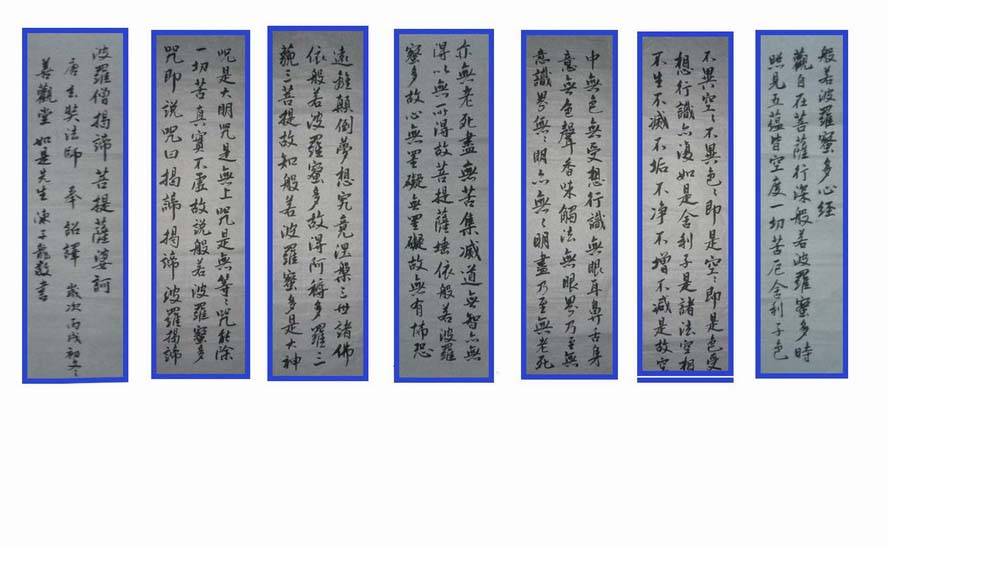 般若波羅蜜多心经
觀自在菩薩行深般若波羅蜜多時
照見五蘊皆空度一切苦厄舍利子色
不異空〻不異色〻即是空〻即是色受
想行識亦復如是舍利子是諸法空相
不生不滅不垢不净不增不减是故空
中無色無受想行識無眼耳鼻舌身
意無色聲香味觸法無眼界乃至無
意識界無〻明亦無〻明盡乃至無老死
亦無老死盡無苦集滅道無智亦無
得以無所得故菩提薩埵依般若波羅
蜜多故心無罣礙無罣礙故無有怖恐
遠離顛倒夢想究竟涅槃三世諸佛
依般若波羅蜜多故得阿耨多羅三
藐三菩提故知般若波羅蜜多是大神
咒是大明咒是無上咒是無等〻咒能除
一切苦真實不虛故説般若波羅蜜多
咒即説咒曰揭諦揭諦波羅揭諦
波羅僧揭諦菩提薩婆訶
唐玄奘法師 奉 詔譯 歲次丙戌初冬
善觀堂如是先生 陳子龍敬書